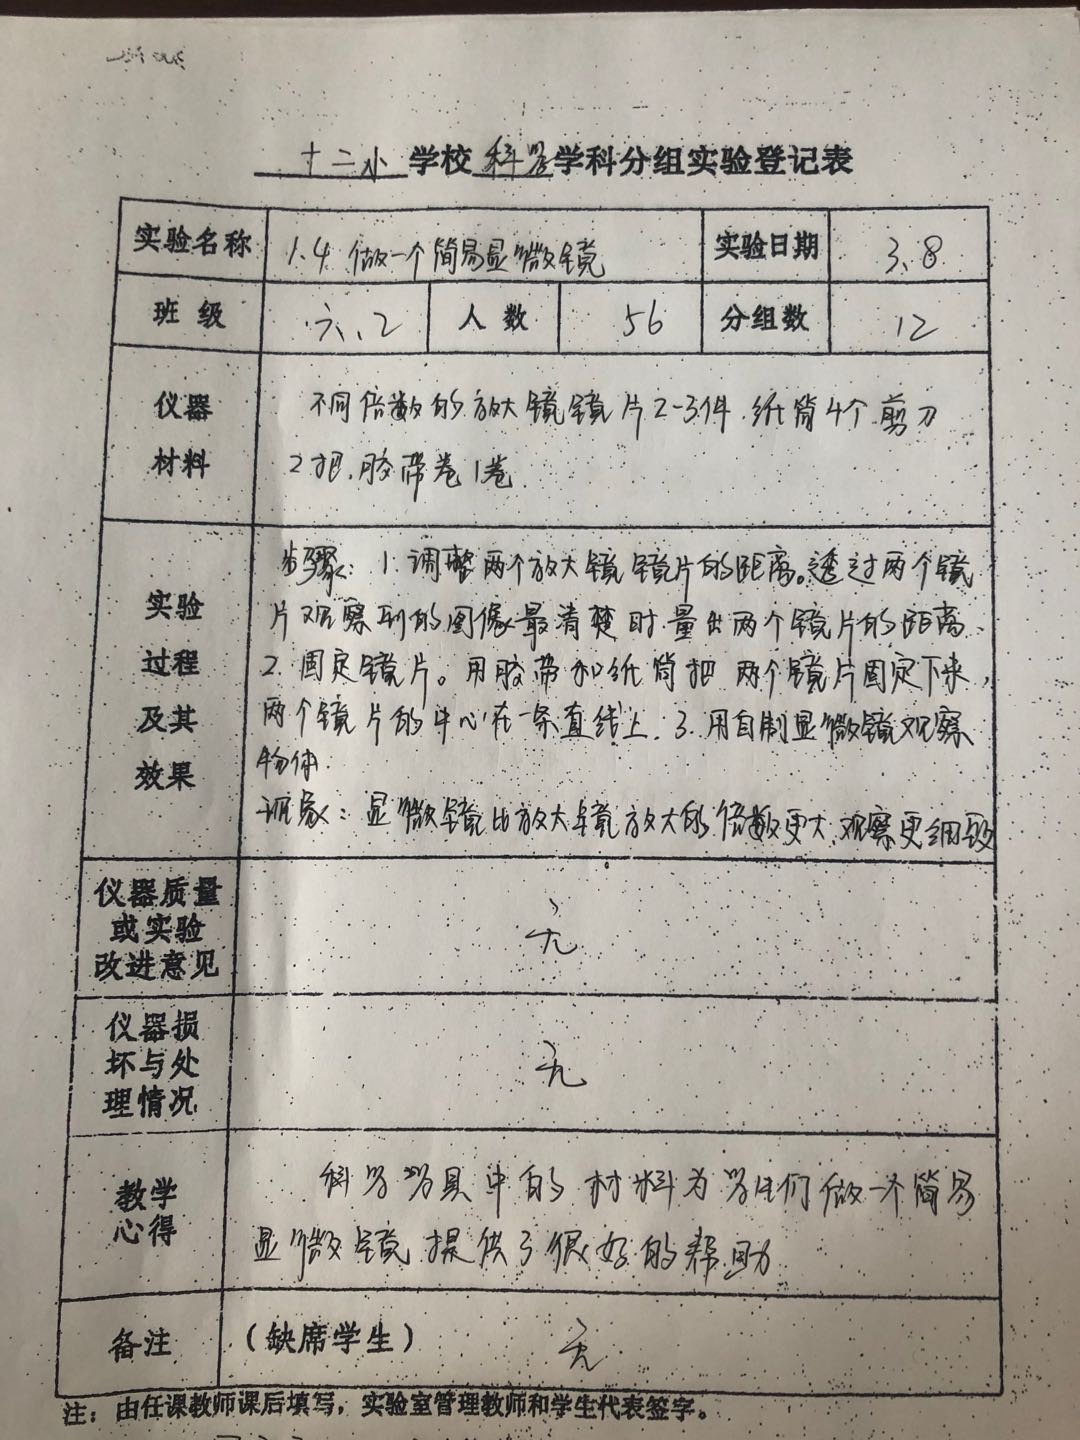 十二小 学校 科学 学科分组实验登记表
实验名称 1.4 做一个简易显微镜 实验日期 3、8
班级 六、2 人数 56 分组数 12
仪器材料
不同倍数的放大镜镜片2-3件.纸筒4个.剪刀
2把.胶带卷1卷.
实验过程及其效果
步骤: 1.调整两个放大镜镜片的距离。透过两个镜
片观察到的图像最清楚时.量出两个镜片的距离.
2.固定镜片。用胶带和纸筒把两个镜片固定下来,
两个镜片的中心在一条直线上. 3.用自制显微镜观察
物体.
现象:显微镜比放大镜放大的倍数更大.观察更细致
仪器质量
或实验
改进意见
无
仪器损
坏与处
理情况
无
教学
心得
科学学具中的材料为学生们做一个简易
显微镜提供了很好的帮助
备注 (缺席学生) 无
注：由任课教师课后填写，实验室管理教师和学生代表签字。